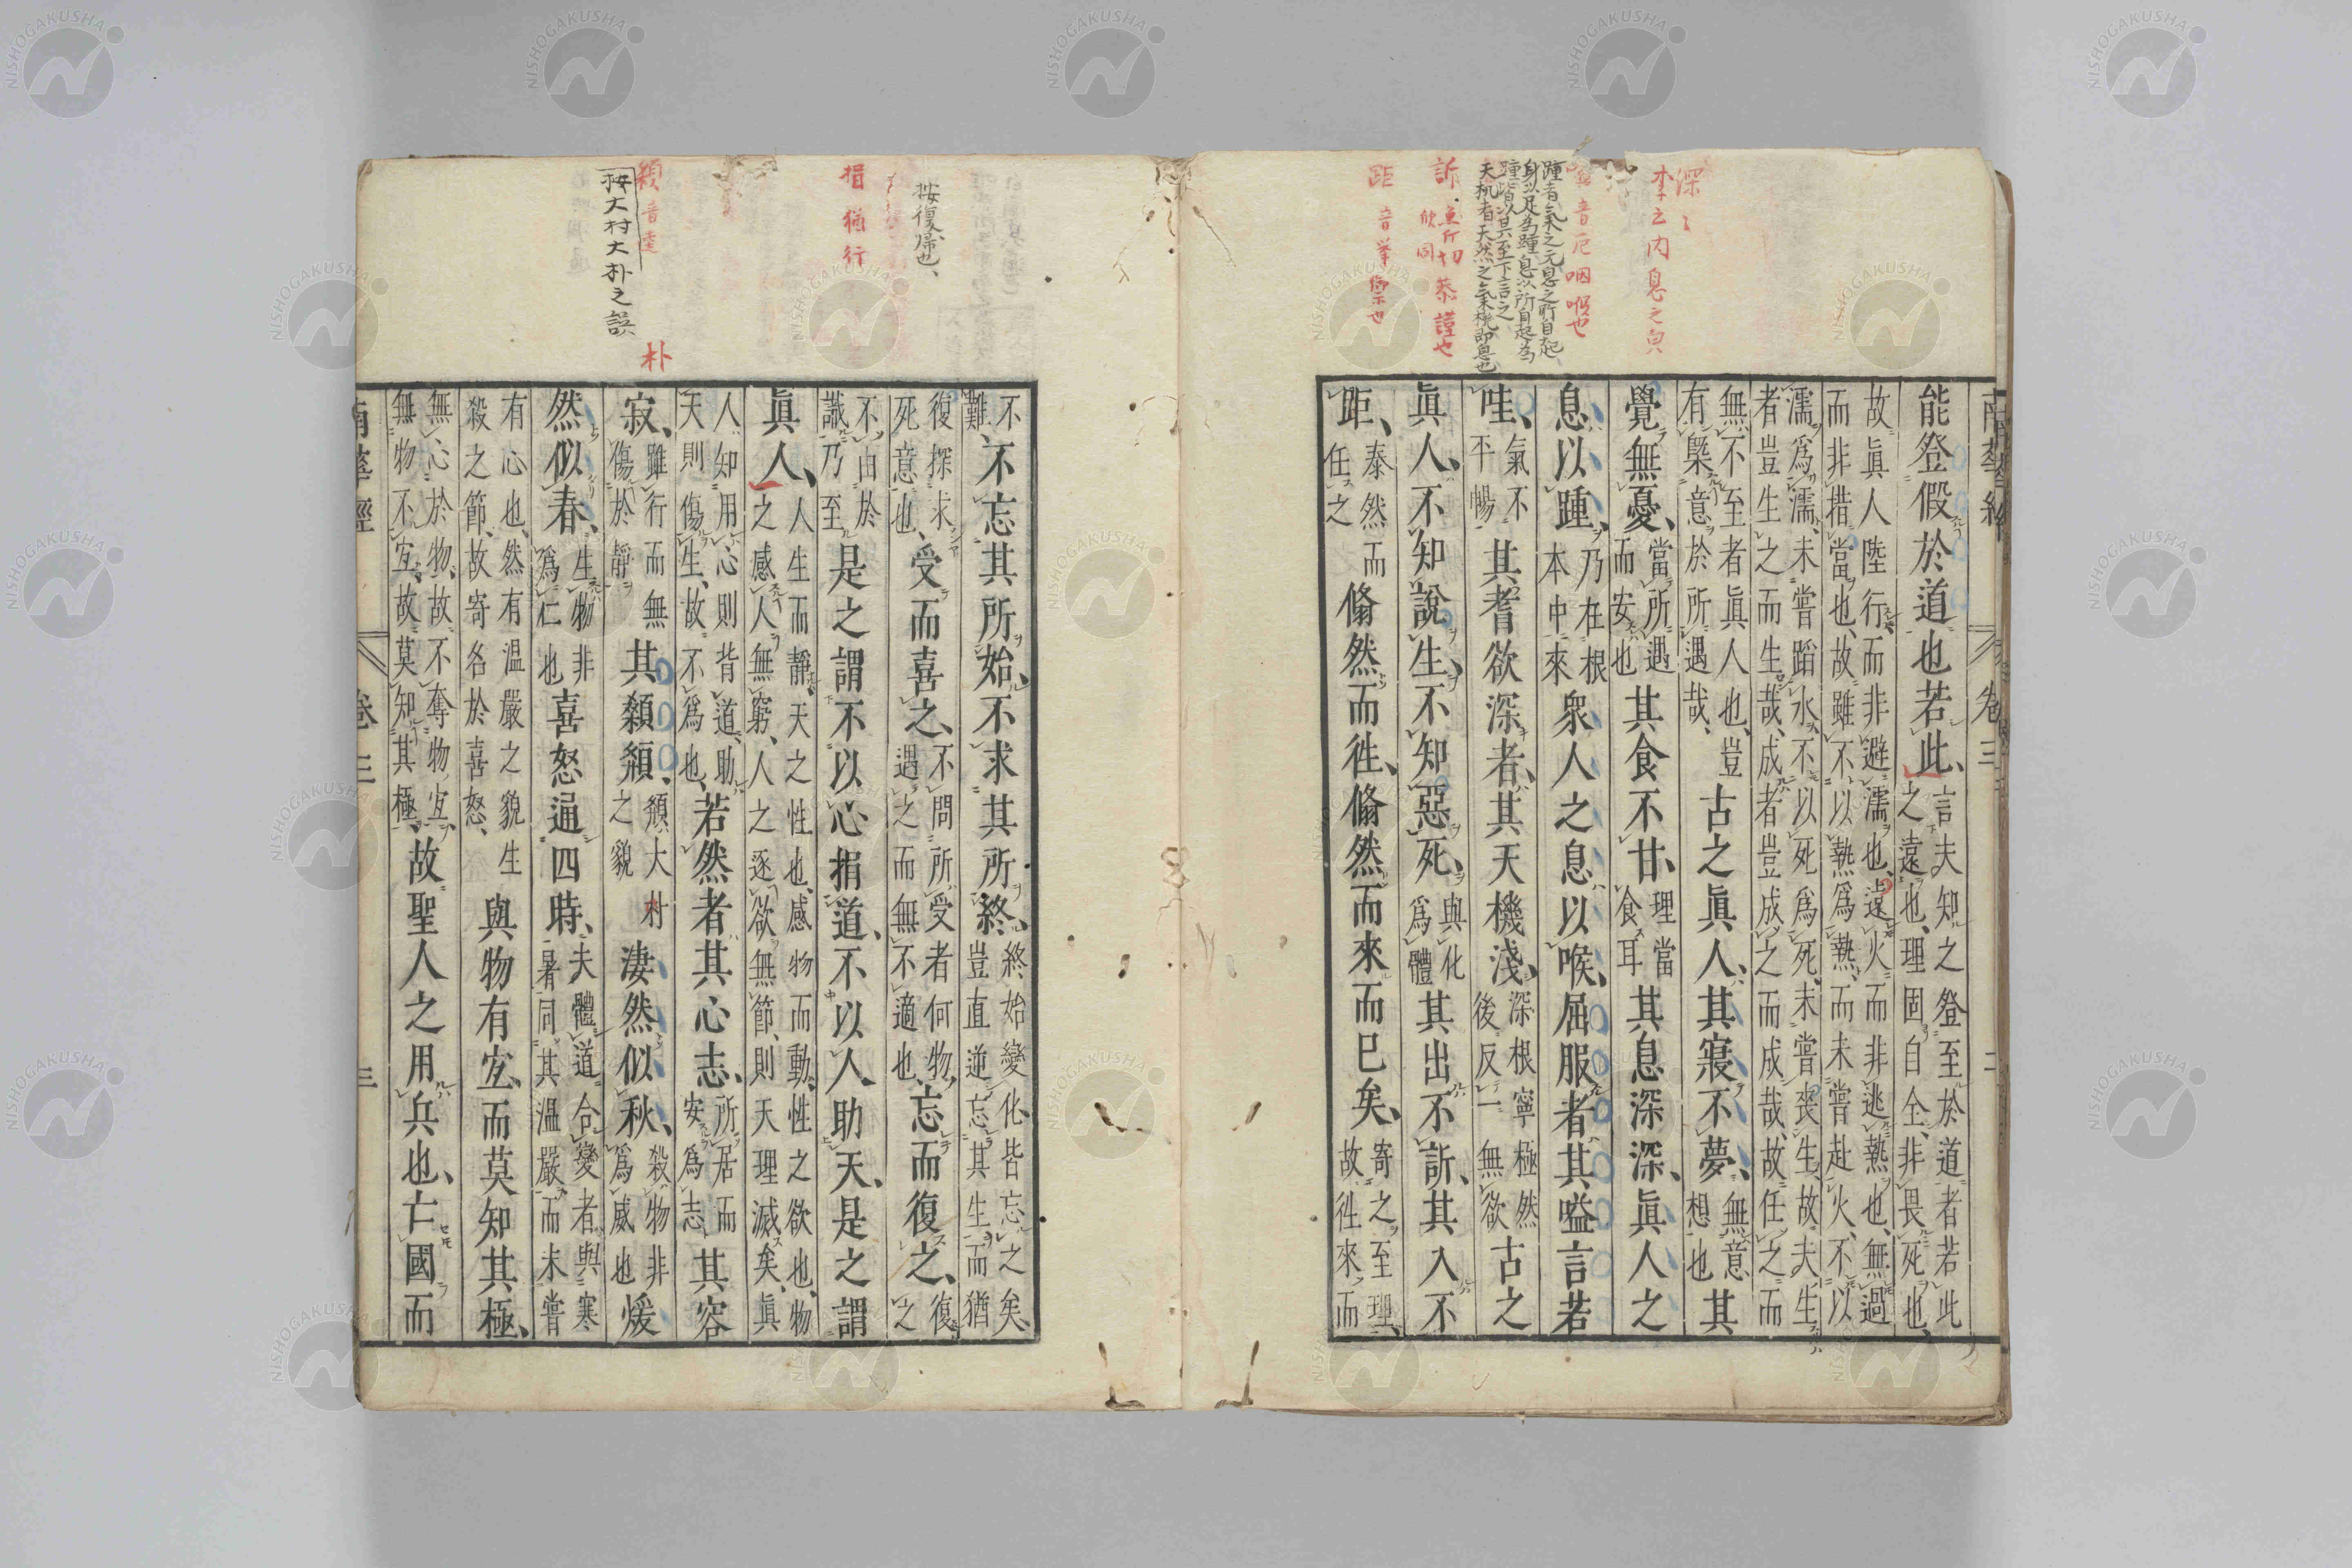 南華經 卷三 二
能登假於道也若此、言夫知之登至於道者若此之遠也、理固自全、非畏死也、
故眞人陸行而非避濡也、遠火而非逃熱也、無過而非措當也、故雖不以熱爲熱、而未嘗赴火、不以
濡爲濡、未嘗蹈水、不以死爲死、未嘗喪生、故夫生者豈生之而生哉、成者豈成之而成哉、故任之而
無不至者眞人也、豈有槩意於所遇哉、古之眞人、其寢不夢、無意想也其
覺無憂、當所遇而安也其食不甘、理當食耳其息深深、眞人之
息以踵、乃在根本中來衆人之息以喉、屈服者其嗌言若
哇、氣不平暢其耆欲深者、其天機淺、深根寧極然後反一無欲古之
眞人、不知說生、不知惡死、與化爲體其出不訢、其入不
距、泰然而任之翛然而徃、翛然而來而已矣、寄之至理、故徃來而
不難不忘其所始、不求其所終、終始變化皆忘之矣、豈直逆忘其生而猶
復探求死意也、受而喜之、不問所受者何物、遇之而無不適也、忘而復之、復之
不由於識乃至是之謂不以心捐道、不以人助天、是之謂
眞人、人生而靜天之性也、感物而動、性之欲也、物之感人無窮、人之逐欲無節、則天理滅矣、眞
人知用心則背道、助天則傷生、故不爲也、若然者其心志、所居而安爲志其容
寂、雖行而無傷於靜其顙頯、頯大朴之貌淒然似秋、殺物非爲威也煖
然似春、生物非爲仁也喜怒通四時、夫體道合變者與寒暑同其溫嚴而未嘗
有心也、然有溫嚴之貌生殺之節、故寄名於喜怒、與物有宐、而莫知其極、
無心於物、故不奪物宐、無物不宐、故莫知其極、故聖人之用兵也、亡國而
南華經 卷三 三
深〻
李云内息之皃
音厄咽喉也
踵者氣之元息之所自起
身以足為踵息以所自起為
踵皆以其至下言之
天机者天然之氣机即息也
訴
欣同
恭謹也
距 音挙禦也
按復歸也、
捐 猶行
按大村大朴之誤
朴